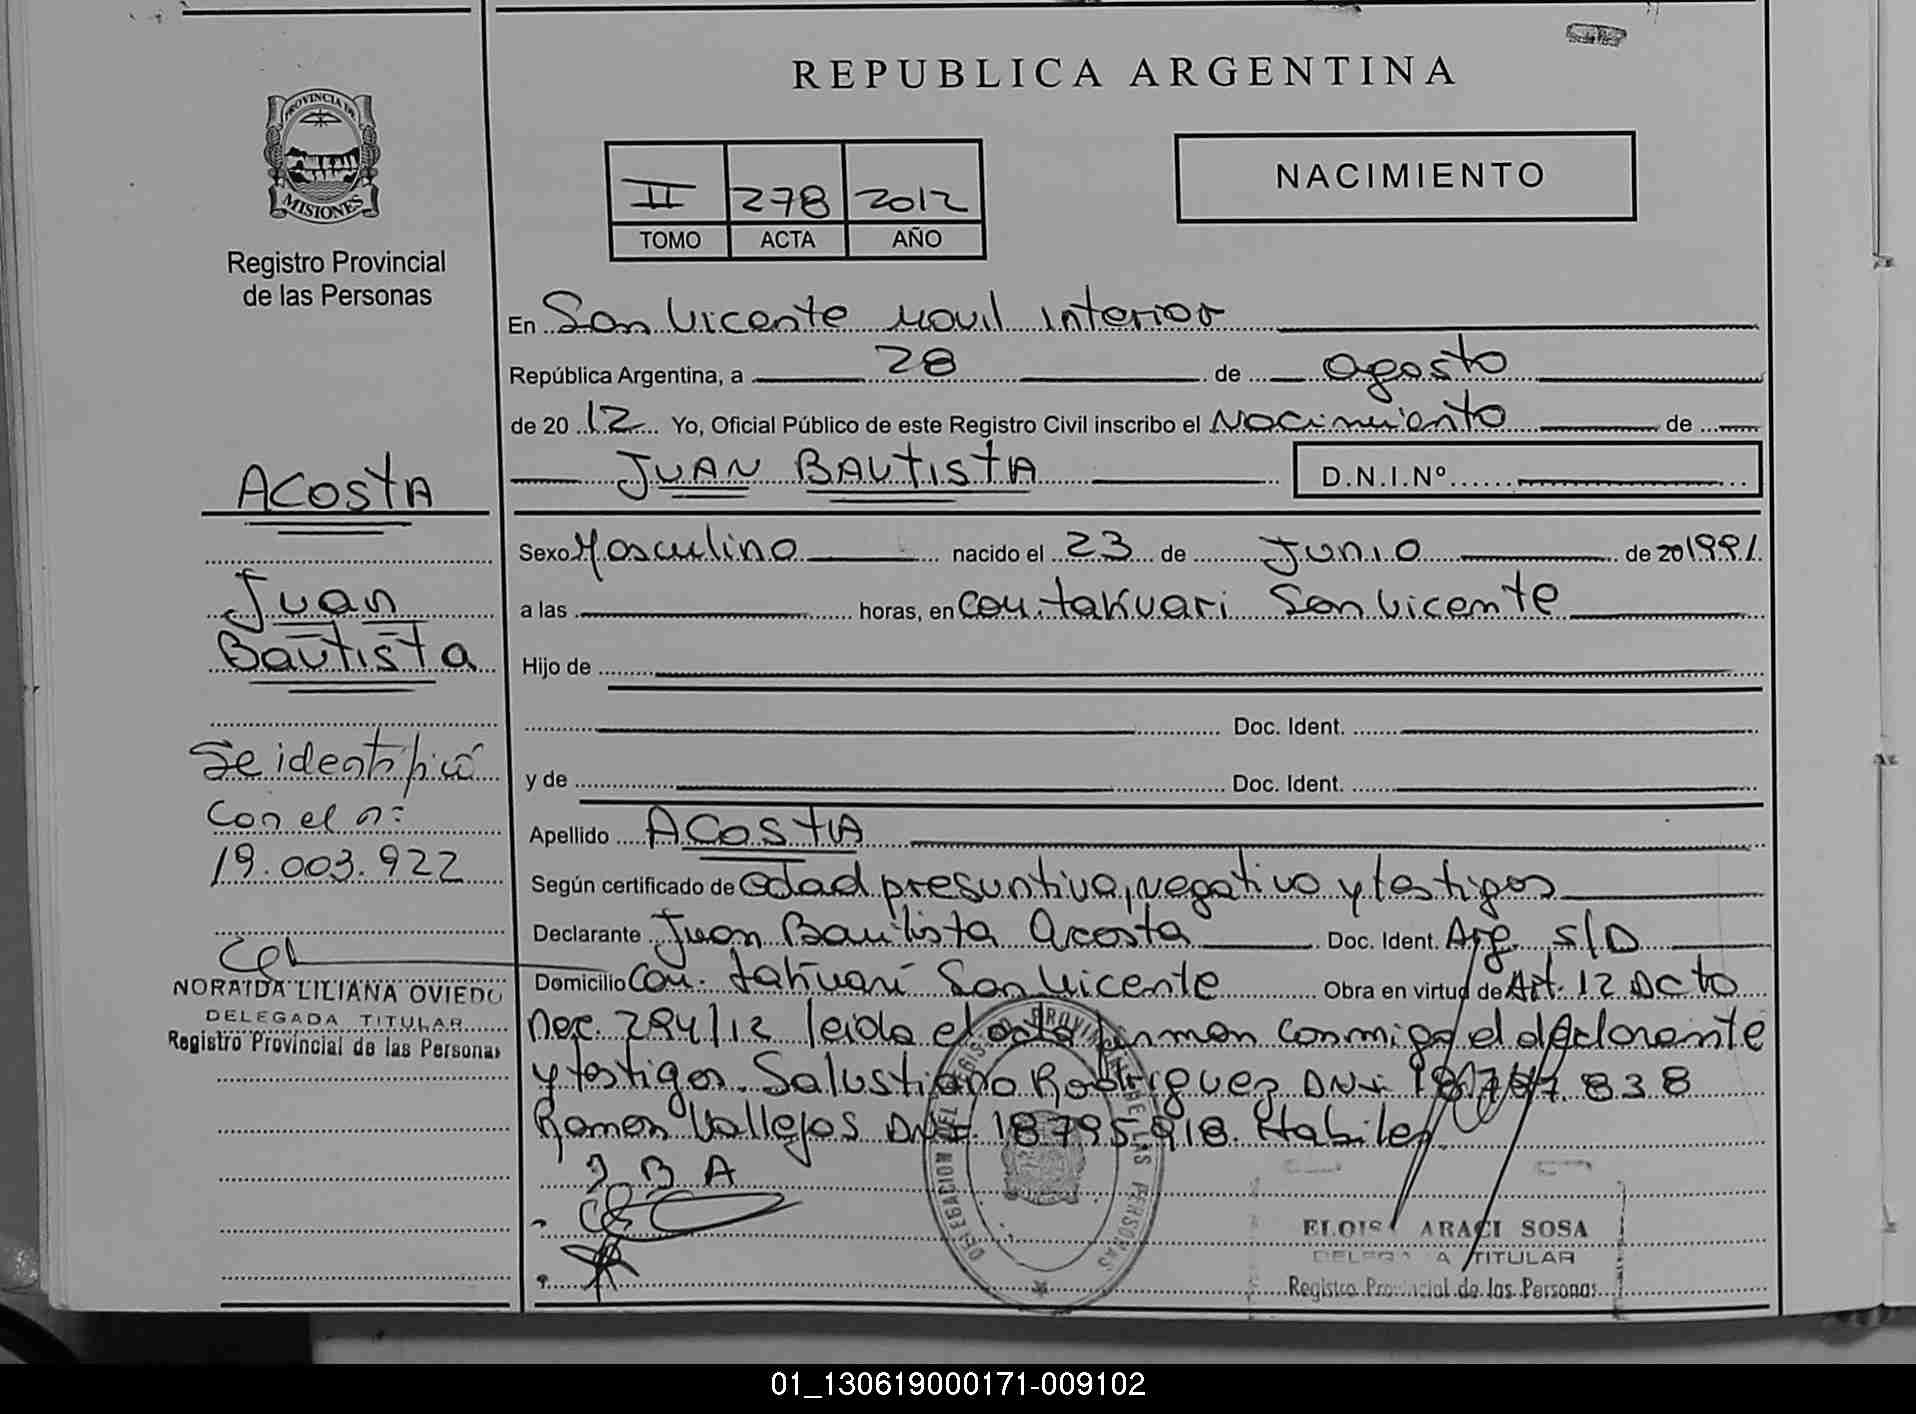 REPUBLICA ARGENTINA
PROVINCIA DE
MISIONES
Registro Provincial
de las Personas
II 278 2012
TOMO ACTA AÑO
NACIMIENTO
En San Vicente Movil Interior
República Argentina, a 28 de agosto
de 2012 Yo, Oficial Público de este Registro Civil inscribo el Nacimiento de
JUAN BAUTISTA D.N.I.Nº
Sexo Masculino nacido el 23 de Junio de 20 1991.
a las horas, en Cou. takuari San Vicente
Hijo de
Doc. Ident.
y de Doc. Ident.
Apellido ACOSTA
Según certificado de edad presuntiva, negativo y testigos
Declarante Juan Bautista Acosta Doc. Ident. Arg. S/D
Domicilio Cou. takuari San Vicente Obra en virtud de Art. 12 Dcto
Dec. 294/12 leida el acta firman conmigo el declarante
y testigos. Salustiano Rodriguez DNI 18.747.838
Ramon Vallejos DNI. 18795.918. Habiles
J B A
ACOSTA
Juan
Bautista
Se identificó
Con el nº
19.003.922
NORAIDA LILIANA OVIEDO
DELEGADA TITULAR
Registro Provincial de las Personas
DELEGACION DEL REGISTRO PROVINCIAL DE LAS PERSONAS
ARACI SOSA
TITULAR
Registro Provincial de las Personas
01_130619000171-009102